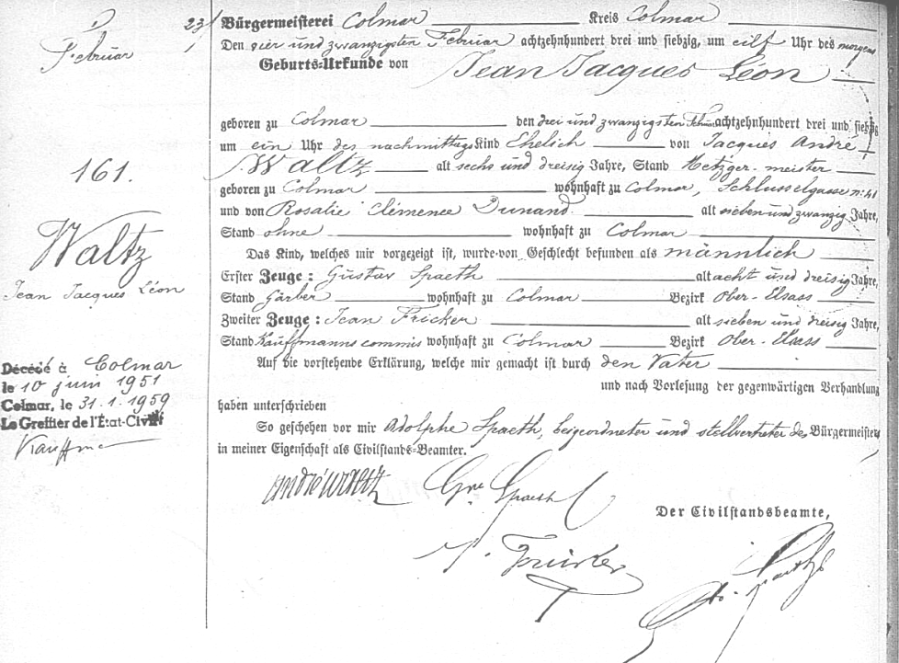 23
Februar
161.
Waltz
Jean Jacques Léon
Décédé à Colmar
le 10 juin 1951
Colmar, le 31.1.1959
Le Greffier de l'État-Civil
Bürgermeisterei Colmar Kreis Colmar
Den vier und zwanzigsten Februar achtzehnhundert drei und siebzig, um eilf Uhr des morgens
Geburts-Urkunde von Jean Jacques Léon
geboren zu Colmar den drei und zwanzigsten achtzehnhundert drei und siebzig
um ein Uhr des nachmittags Kind Ehelich von Jacques André
Waltz alt sechs und dreisig Jahre, Stand Metzger-meister
geboren zu Colmar wohnhaft zu Colmar, Schlusselgasse n: 41
und von Rosalie Clémence Dunand alt sieben und zwanzig Jahre,
Stand ohne wohnhaft zu Colmar
Das Kind, welches mir vorgezeigt ist, wurde von Geschlecht befunden als männlich
Erster Zeuge: Gustav Spaeth alt acht und dreisig Jahre,
Stand Gärber wohnhaft zu Colmar Bezirk Ober-Elsass
Zweiter Zeuge: Jean Fricker alt sieben und dreisig Jahre,
Stand Kauffmanns commis wohnhaft zu Colmar Bezirk Ober-Elsass
Auf die vorstehende Erklärung, welche mir gemacht ist durch den Vater
und nach Vorlesung der gegenwärtigen Verhandlung
haben unterschrieben
So geschehen vor mir Adolphe Spaeth, beigeordneter und stellvertreter des Bürgermeisters
in meiner Eigenschaft als Civilstands-Beamter.
André Waltz Gve Spaeth
J. Fricker
Der Civilstandsbeamte,
Ad. Spaeth